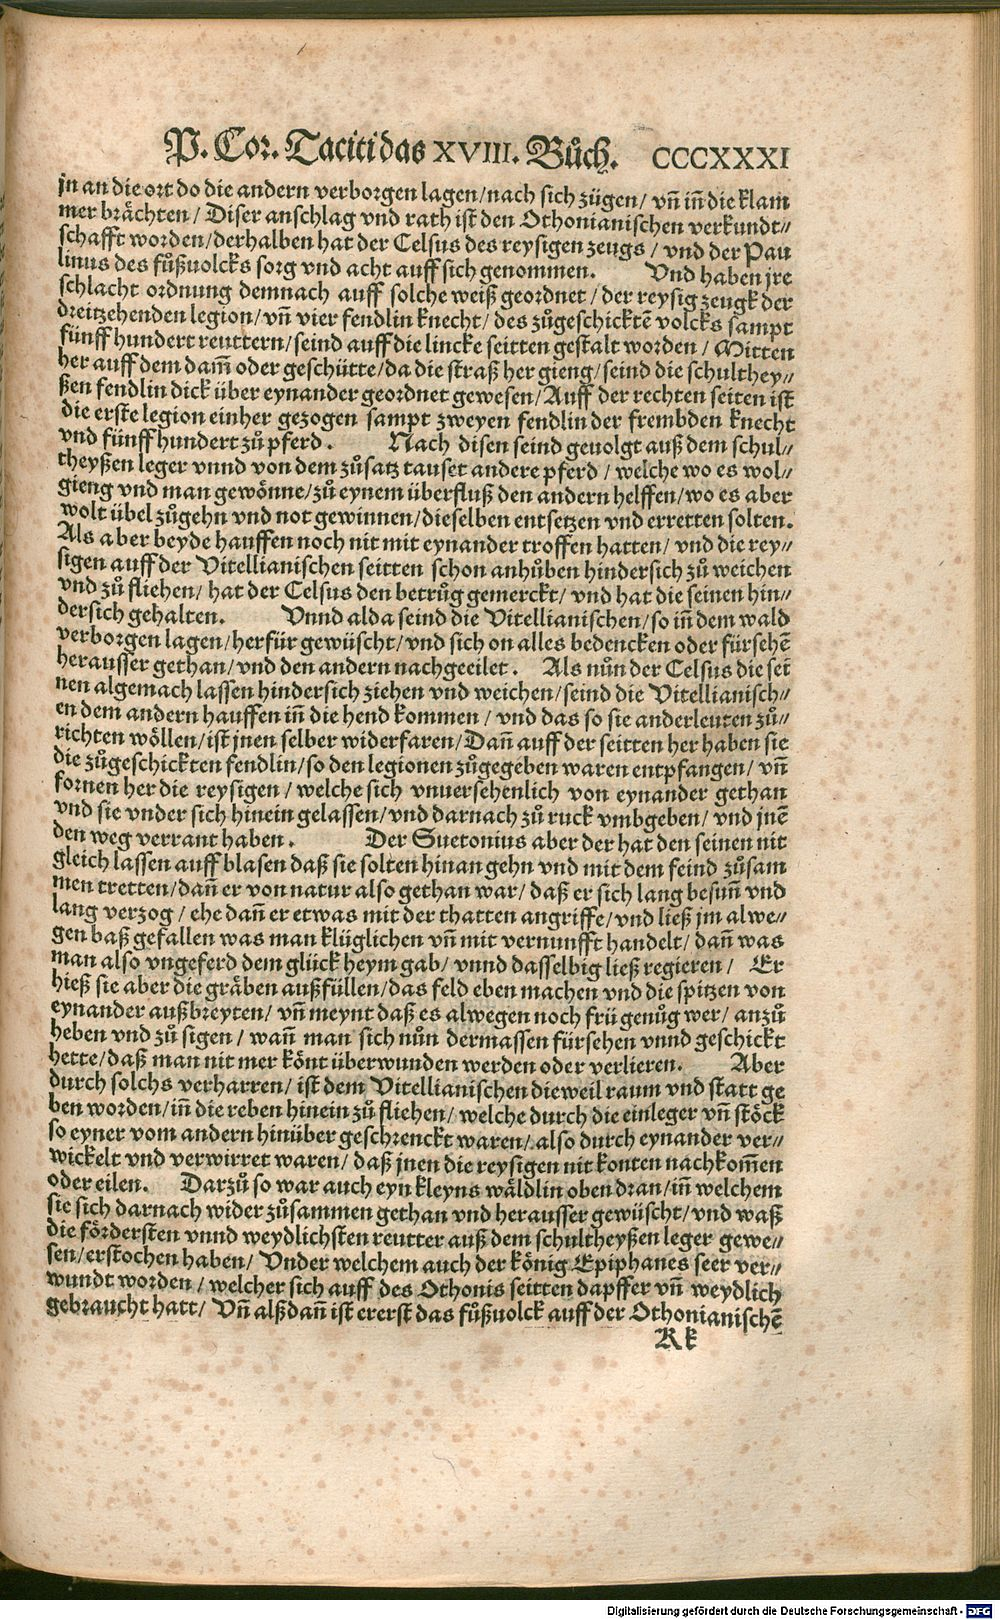 P. Cor. Taciti das XVIII. Bůch. CCCXXXI
jn an die ort do die andern verborgen lagen/nach sich zügen/ vñ iñ die klam
mer brächten/ Diser anschlag vnd rath ist den Othonianischen verkundt//
schafft worden/derhalben hat der Celsus des reysigen zeugs/ vnd der Pau
linus des fůßuolcks sorg vnd acht auff sich genommen. Vnd haben jre
schlacht ordnung demnach auff solche weiß geordnet/ der reysig zeugk der
dreitzehenden legion/ vñ vier fendlin knecht/ des zůgeschicktē volcks sampt
fünff hundert reuttern/seind auff die lincke seitten gestalt worden/ Mitten
her auff dem dam̃ oder geschütte/da die straß her gieng/seind die schulthey//
ßen fendlin dick über eynander geordnet gewesen/Auff der rechten seiten ist
die erste legion einher gezogen sampt zweyen fendlin der frembden knecht
vnd fünff hundert zů pferd. Nach disen seind geuolgt auß dem schul//
theyßen leger vnnd von dem zůsatz tauset andere pferd/ welche wo es wol//
gieng vnd man gewönne/zů eynem überfluß den andern helffen/wo es aber
wolt übel zůgehn vnd not gewinnen/dieselben entsetzen vnd erretten solten.
Als aber beyde hauffen noch nit mit eynander troffen hatten/ vnd die rey//
sigen auff der Vitellianischen seitten schon anhůben hindersich zů weichen
vnd zů fliehen/ hat der Celsus den betrůg gemerckt/ vnd hat die seinen hin//
dersich gehalten. Vnnd alda seind die Vitellianischen/so iñ dem wald
verborgen lagen/herfür gewüscht/vnd sich on alles bedencken oder fürsehē
herausser gethan/vnd den andern nachgeeilet. Als nůn der Celsus die sei
nen algemach lassen hindersich ziehen vnd weichen/seind die Vitellianisch//
en dem andern hauffen iñ die hend kommen/ vnd das so sie anderleuten zů//
richten wöllen/ist jnen selber widerfaren/Dañ auff der seitten her haben sie
die zůgeschickten fendlin/so den legionen zůgegeben waren entpfangen/ vñ
fornen her die reysigen/ welche sich vnuersehenlich von eynander gethan
vnd sie vnder sich hinein gelassen/vnd darnach zů ruck vmbgeben/ vnd jnē
den weg verrant haben. Der Suetonius aber der hat den seinen nit
gleich lassen auff blasen daß sie solten hinan gehn vnd mit dem feind zůsam
men tretten/dañ er von natur also gethan war/ daß er sich lang besuñ vnd
lang verzog/ ehe dañ er etwas mit der thatten angriffe/vnd ließ jm alwe//
gen baß gefallen was man klüglichen vñ mit vernunfft handelt/ dañ was
man also vngeferd dem glück heym gab/ vnnd dasselbig ließ regieren/ Er
hieß sie aber die gräben außfüllen/das feld eben machen vnd die spitzen von
eynander außbreyten/ vñ meynt daß es alwegen noch frü genůg wer/ anzů
heben vnd zů sigen/ wañ man sich nůn dermassen fürsehen vnnd geschickt
hette/daß man nit mer könt überwunden werden oder verlieren. Aber
durch solchs verharren/ ist dem Vitellianischen dieweil raum vnd statt ge
ben worden/iñ die reben hinein zů fliehen/ welche durch die einleger vñ stöck
so eyner vom andern hinüber geschrenckt waren/ also durch eynander ver//
wickelt vnd verwirret waren/ daß jnen die reysigen nit konten nachkom̃en
oder eilen. Darzů so war auch eyn kleyns wäldlin oben dran/iñ welchem
sie sich darnach wider zůsammen gethan vnd herausser gewüscht/vnd waß
die fördersten vnnd weydlichsten reutter auß dem schultheyßen leger gewe//
sen/erstochen haben/ Vnder welchem auch der könig Epiphanes seer ver//
wundt worden/ welcher sich auff des Othonis seitten dapffer vñ weydlich
gebraucht hatt/ Vñ alßdañ ist ererst das fůßuolck auff der Othonianischē
Kk
Digitalisierung gefördert durch die Deutsche Forschungsgemeinschaft - DFG